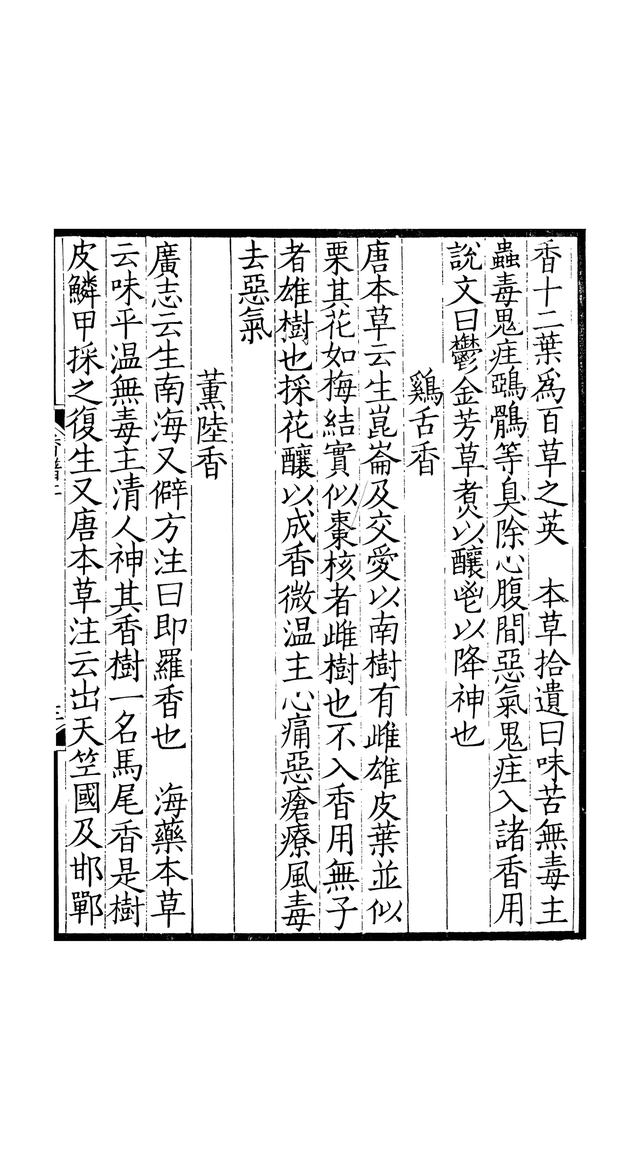 香十二葉爲百草之英　本草拾遺曰味苦無毒主
蟲毒鬼疰鵶鶻等臭除心腹間惡氣鬼疰入諸香用
說文曰鬱金芳草煑以釀鬯以降神也
鷄舌香
唐本草云生崑崙及交愛以南樹有雌雄皮葉並似
栗其花如梅結實似棗核者雌樹也不入香用無子
者雄樹也採花釀以成香微温主心痛惡瘡療風毒
去惡氣
薰陸香
廣志云生南海又僻方注曰即羅香也　海藥本草
云味平温無毒主清人神其香樹一名馬尾香是樹
皮鱗甲採之復生又唐本草注云出天竺國及邯鄲
三